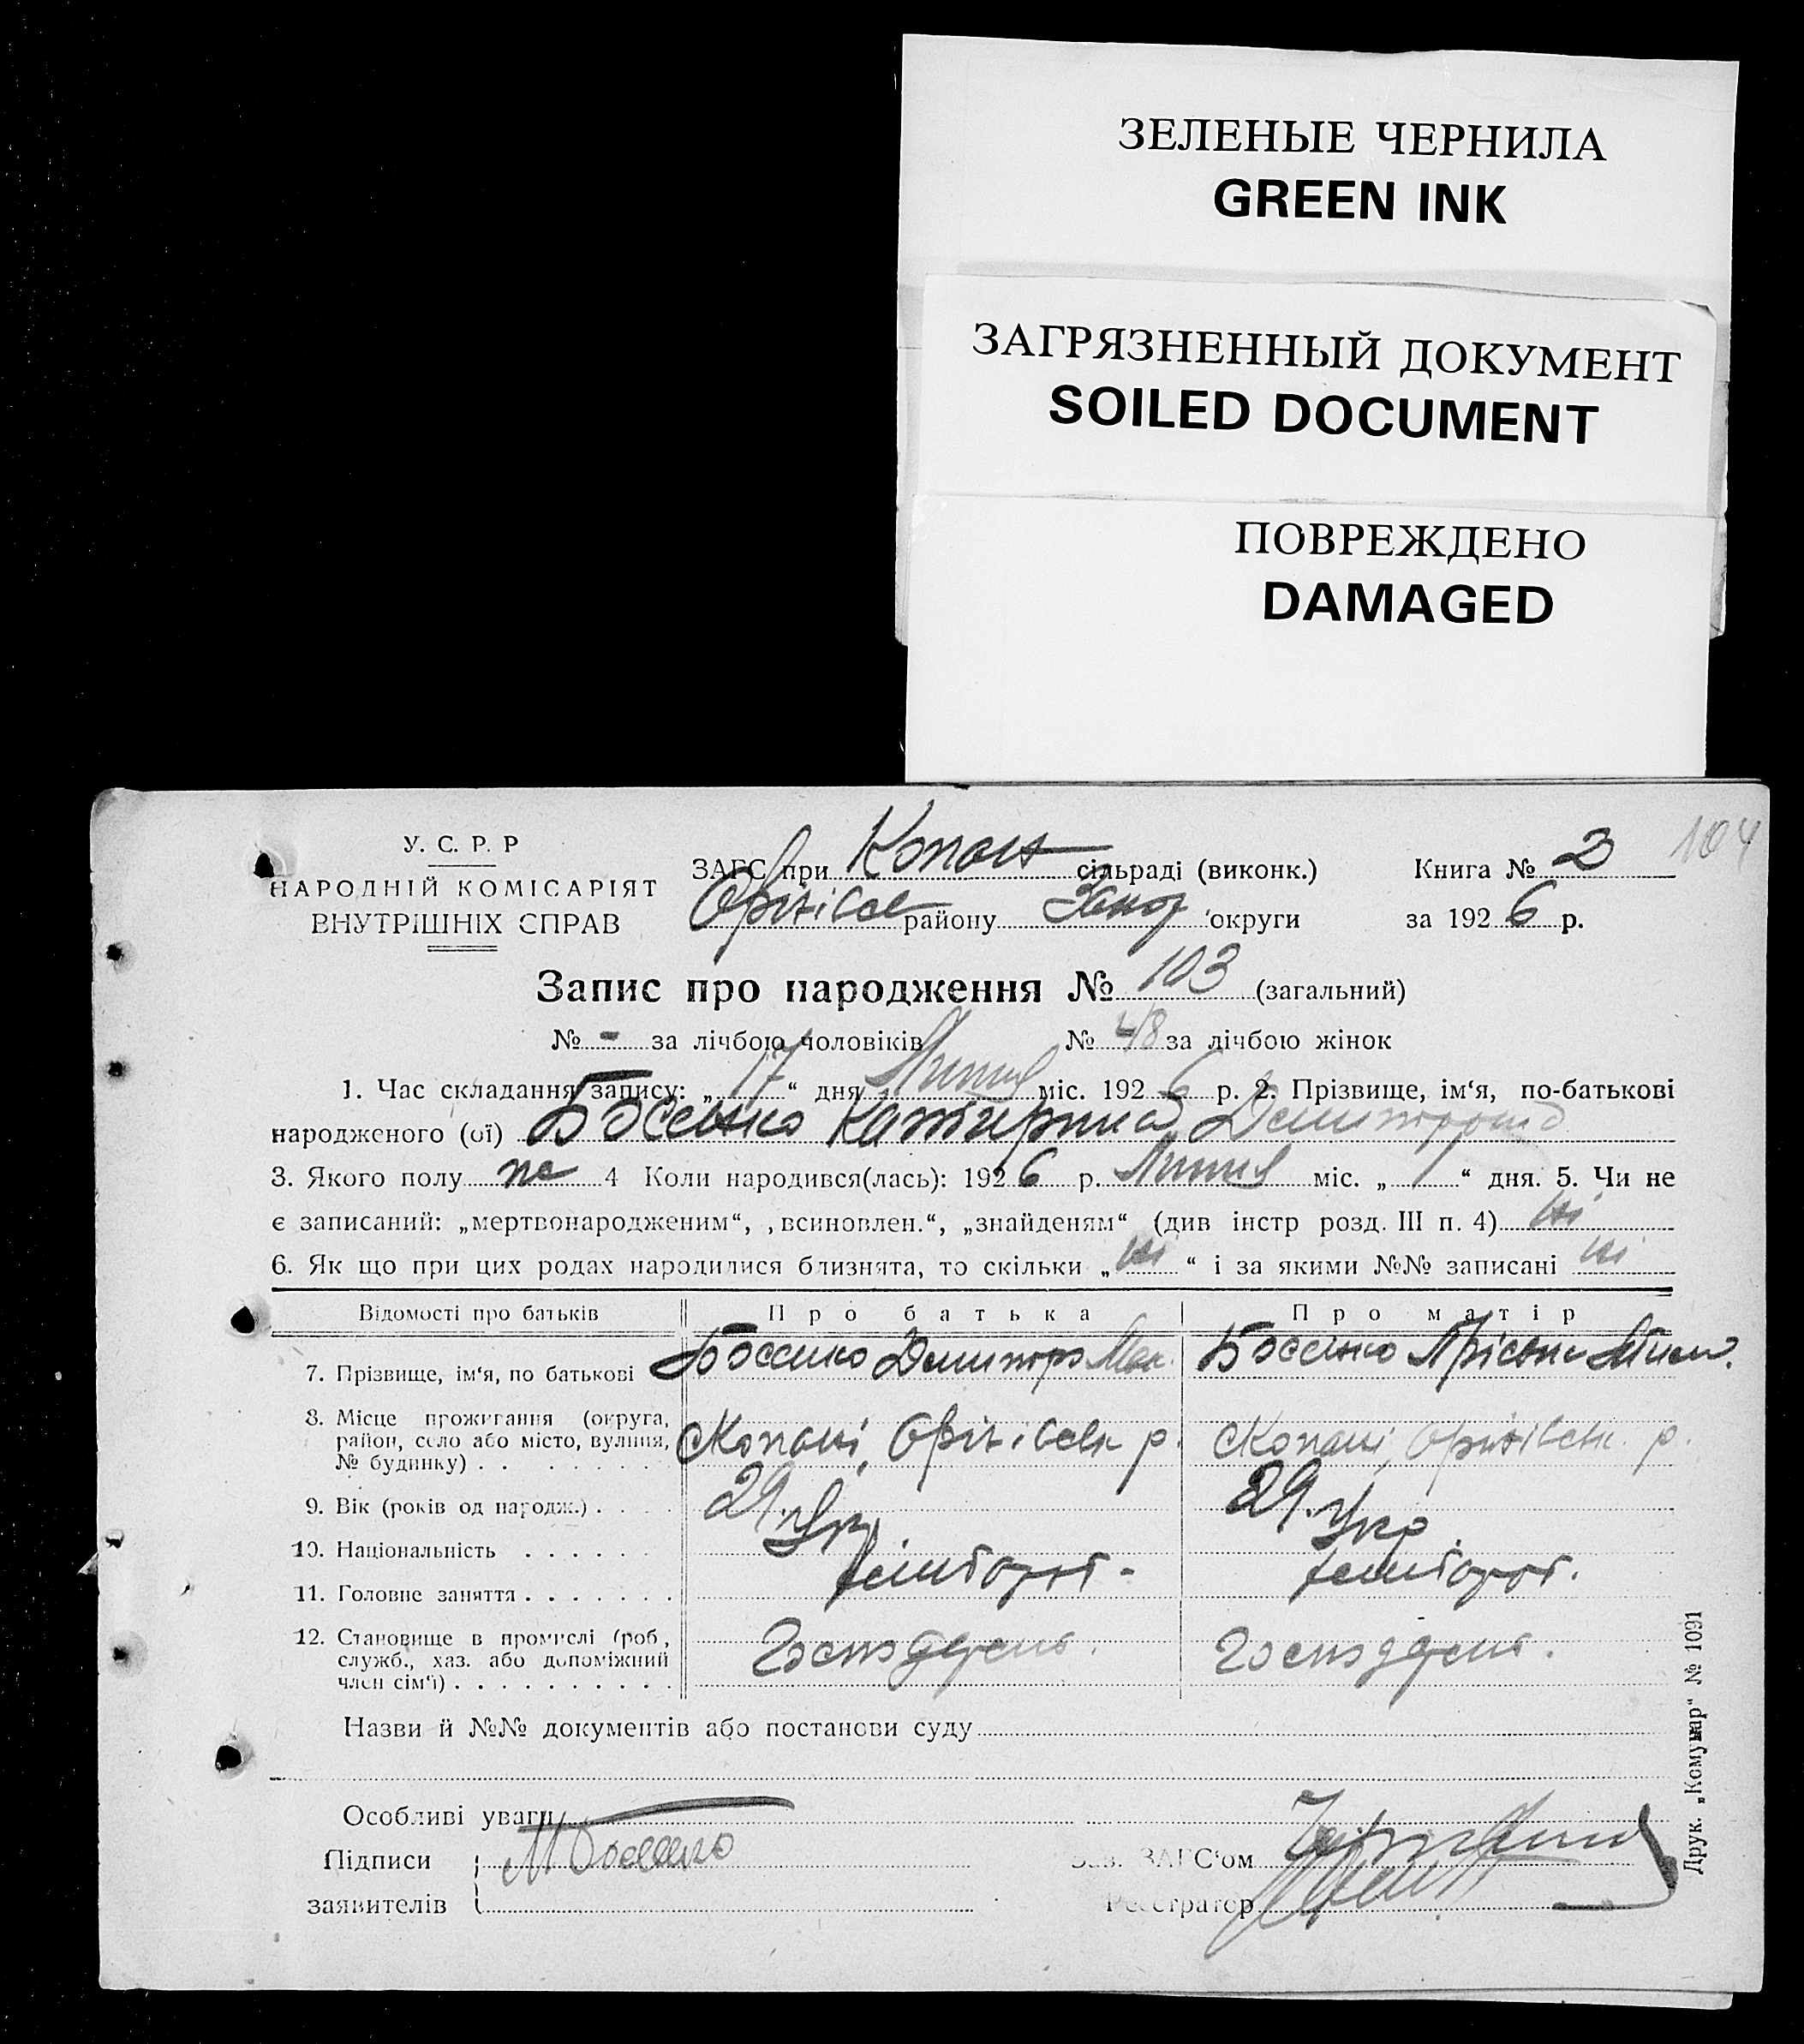 ЗЕЛЕНЫЕ ЧЕРНИЛА
GREEN INK
ЗАГРЯЗНЕННЫЙ ДОКУМЕНТ
SOILED DOCUMENT
ПОВРЕЖДЕНО
DAMAGED
104
У. С. Р. Р
НАРОДНІЙ КОМІСАРІЯТ
ВНУТРІШНІХ СПРАВ
ЗАГС при Копан сільраді (виконк.) Книга № 2
Оріхівсь району Запор округи за 1926 р.
Запис про народження № 103 (загальний)
№ - за лічбою чоловіків № 48 за лічбою жінок
1. Час складання запису: „17“ дня Липня міс. 1926 р. 2. Прізвище, ім‘я, по-батькові
народженого (ої) Босенко Катерина
3. Якого полу 4 Коли народився(лась): 1926 р. Липня міс. „1“ дня. 5. Чи не
є записаний: „мертвонародженим“, „всиновлен.“, „знайденям“ (див інстр розд. III п. 4) ні
6. Як що при цих родах народилися близнята, то скільки „ні“ і за якими №№ записані ні
Відомості про батьків Про батька Про матір
7. Прізвище, ім‘я, по батькові Босенко Демитро Босенко
8. Місце прожигання (округа,
район, село або місто, вулиця,
№ будинку) . . . . . . . . Копані, Оріхівськ р. Копані, Оріхівськ. р.
9. Вік (років од народж.) . . . . 29. 29.
10. Національність . . . . . . Укр. Укр.
11. Головне заняття . . . . . . . хлібороб. хлібороб.
12. Становище в промислі (роб,
служб., хаз. або допоміжний
член сім‘ї) . . . . . . . . . .
Назви й №№ документів або постанови суду
Особливі уваги
Підписи М Босенко Зав. ЗАГС‘ом
заявителів Реєстратор
Друк. „Комунар“ № 1091